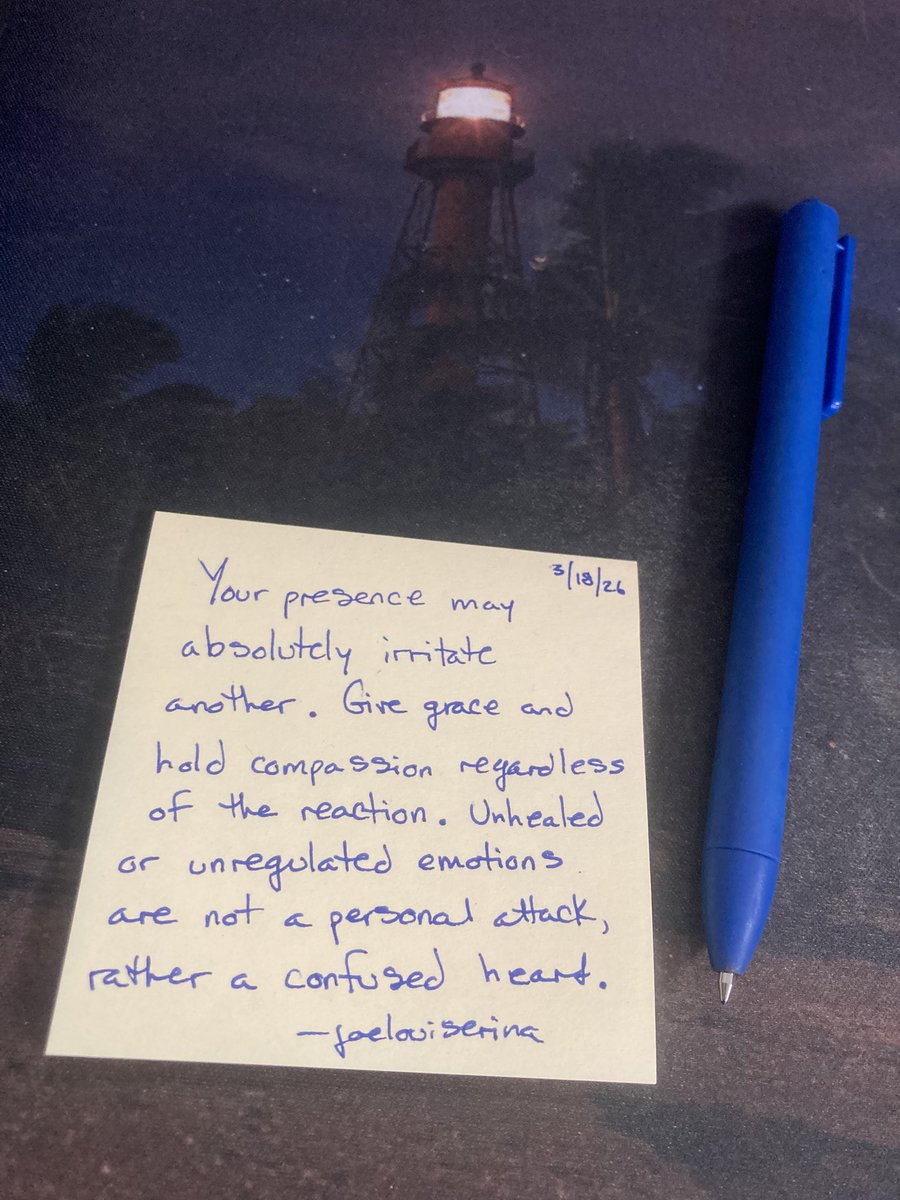 3/18/26
Your presence may
absolutely irritate
another. Give grace and
hold compassion regardless
of the reaction. Unhealed
or unregulated emotions
are not a personal attack,
rather a confused heart.
—joelouiserina